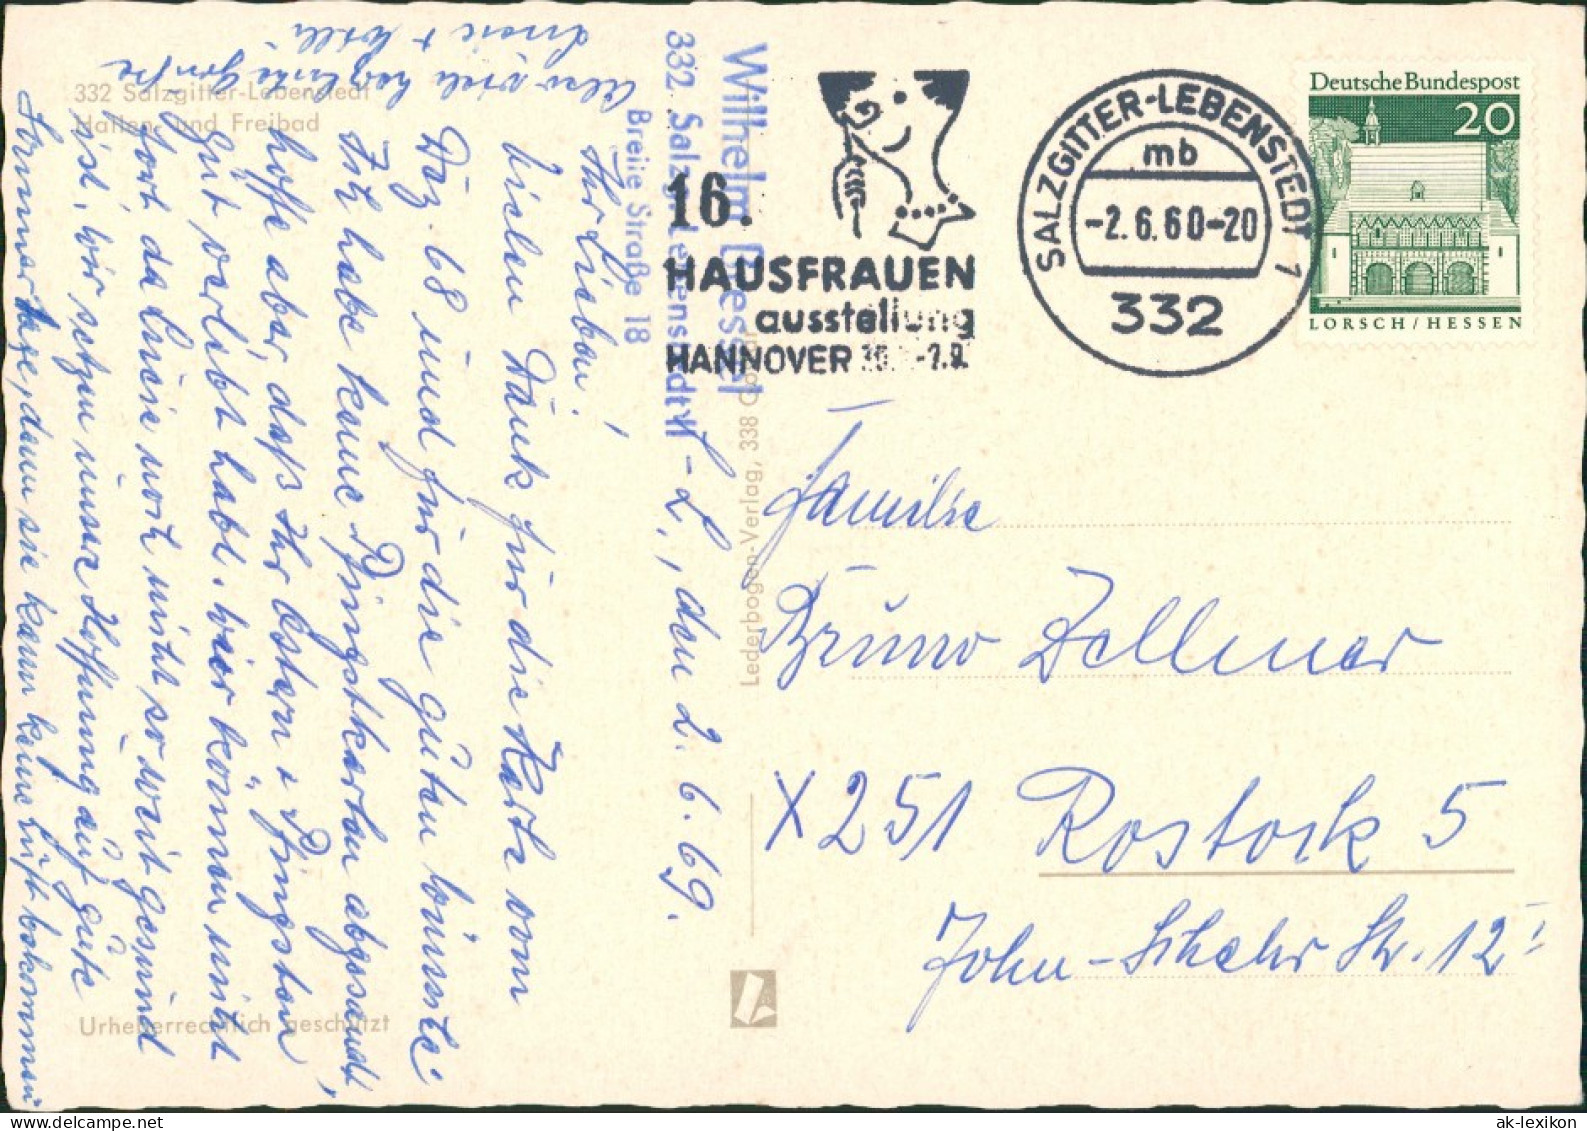 332 Salzgitter-Lebenstedt
Hallen- und Freibad
Wilhelm
332 Salzg.-Lebenstedt
Breite Straße 18
-L., den 2. 6. 69.
Ihr Lieben!
Vielen Dank für die Karte vom
Dez. 68 und für die guten Wünsche.
Ich habe keine Pfingstkarten abgesandt,
hoffe aber, daß Ihr Ostern + Pfingsten
gut verlebt habt. Wir können nicht
fort da Lucie noch nicht so weit gesund
ist, wir setzen unsere Hoffnung auf gute
Sommertage, dann sie kann keine Luft bekommen
Also viele herzliche Grüße
Lucie + Willi
Urheberrechtlich geschützt
Lederbogen-Verlag, 338
16.
HAUSFRAUEN
ausstellung
HANNOVER
SALZGITTER-LEBENSTEDT 1
mb
-2.6.60-20
332
Deutsche Bundespost
20
LORSCH/HESSEN
Familie
Bruno Zellmer
X 251 Rostock 5
John-Schehr Str. 12 I
ak-lexikon.com